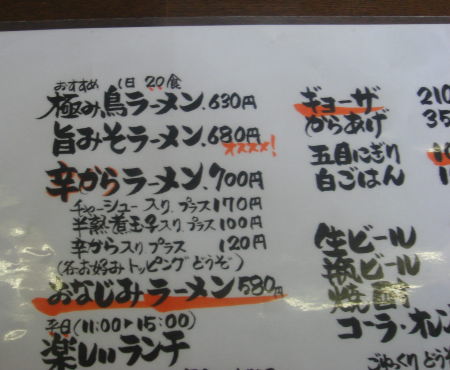 おすすめ 1日 20食
極み鳥ラーメン.630円
旨みそラーメン.680円
オススメ!
辛からラーメン.700円
チャーシュー入り プラス170円
半熟煮玉子入り プラス100円
辛から入り プラス 120円
(各お好みトッピングどうぞ)
おなじみラーメン580円
平日(11:00〜15:00)
楽しいランチ
ギョーザ 210
からあげ 35
五目にぎり 10
白ごはん 1
生ビール
瓶ビール
焼酎
コーラ・オレン
ごゆっくりどう